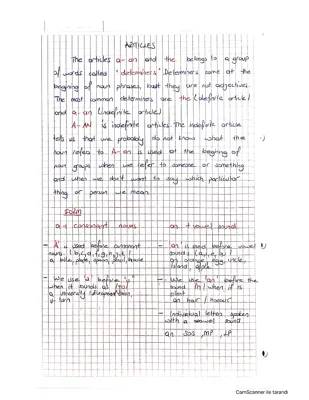 ARTICLES
The articles a-an and the belongs to a group
of words called "determiners". Determiners come at the
begining of noun phrases, but they are not adjectives.
The most common determiners are the (definite article)
and a-an (indefinite article)
A-AN is indefinite articles. The indefinite article
tells us that we probably do not know what the
noun refers to. A-an is used at the begining of
noun groups when we refer to someone or something
and when we don't want to say which particular
thing or person we mean.
FORM
a + consonant nouns
an + vowel sound
- "A" is used before consonant
nouns.
a table, plate,
- We use "a" before "u"
when it sounds as
a university
- an is used before vowel
sounds
an orange, egg, uncle,
island
- We use "an" before the
sound /h/ when it is
silent
an hour / honour
- Individual letter spoken
with a vowel sound
an SOS, MP, LP
CamScanner ile tarandı